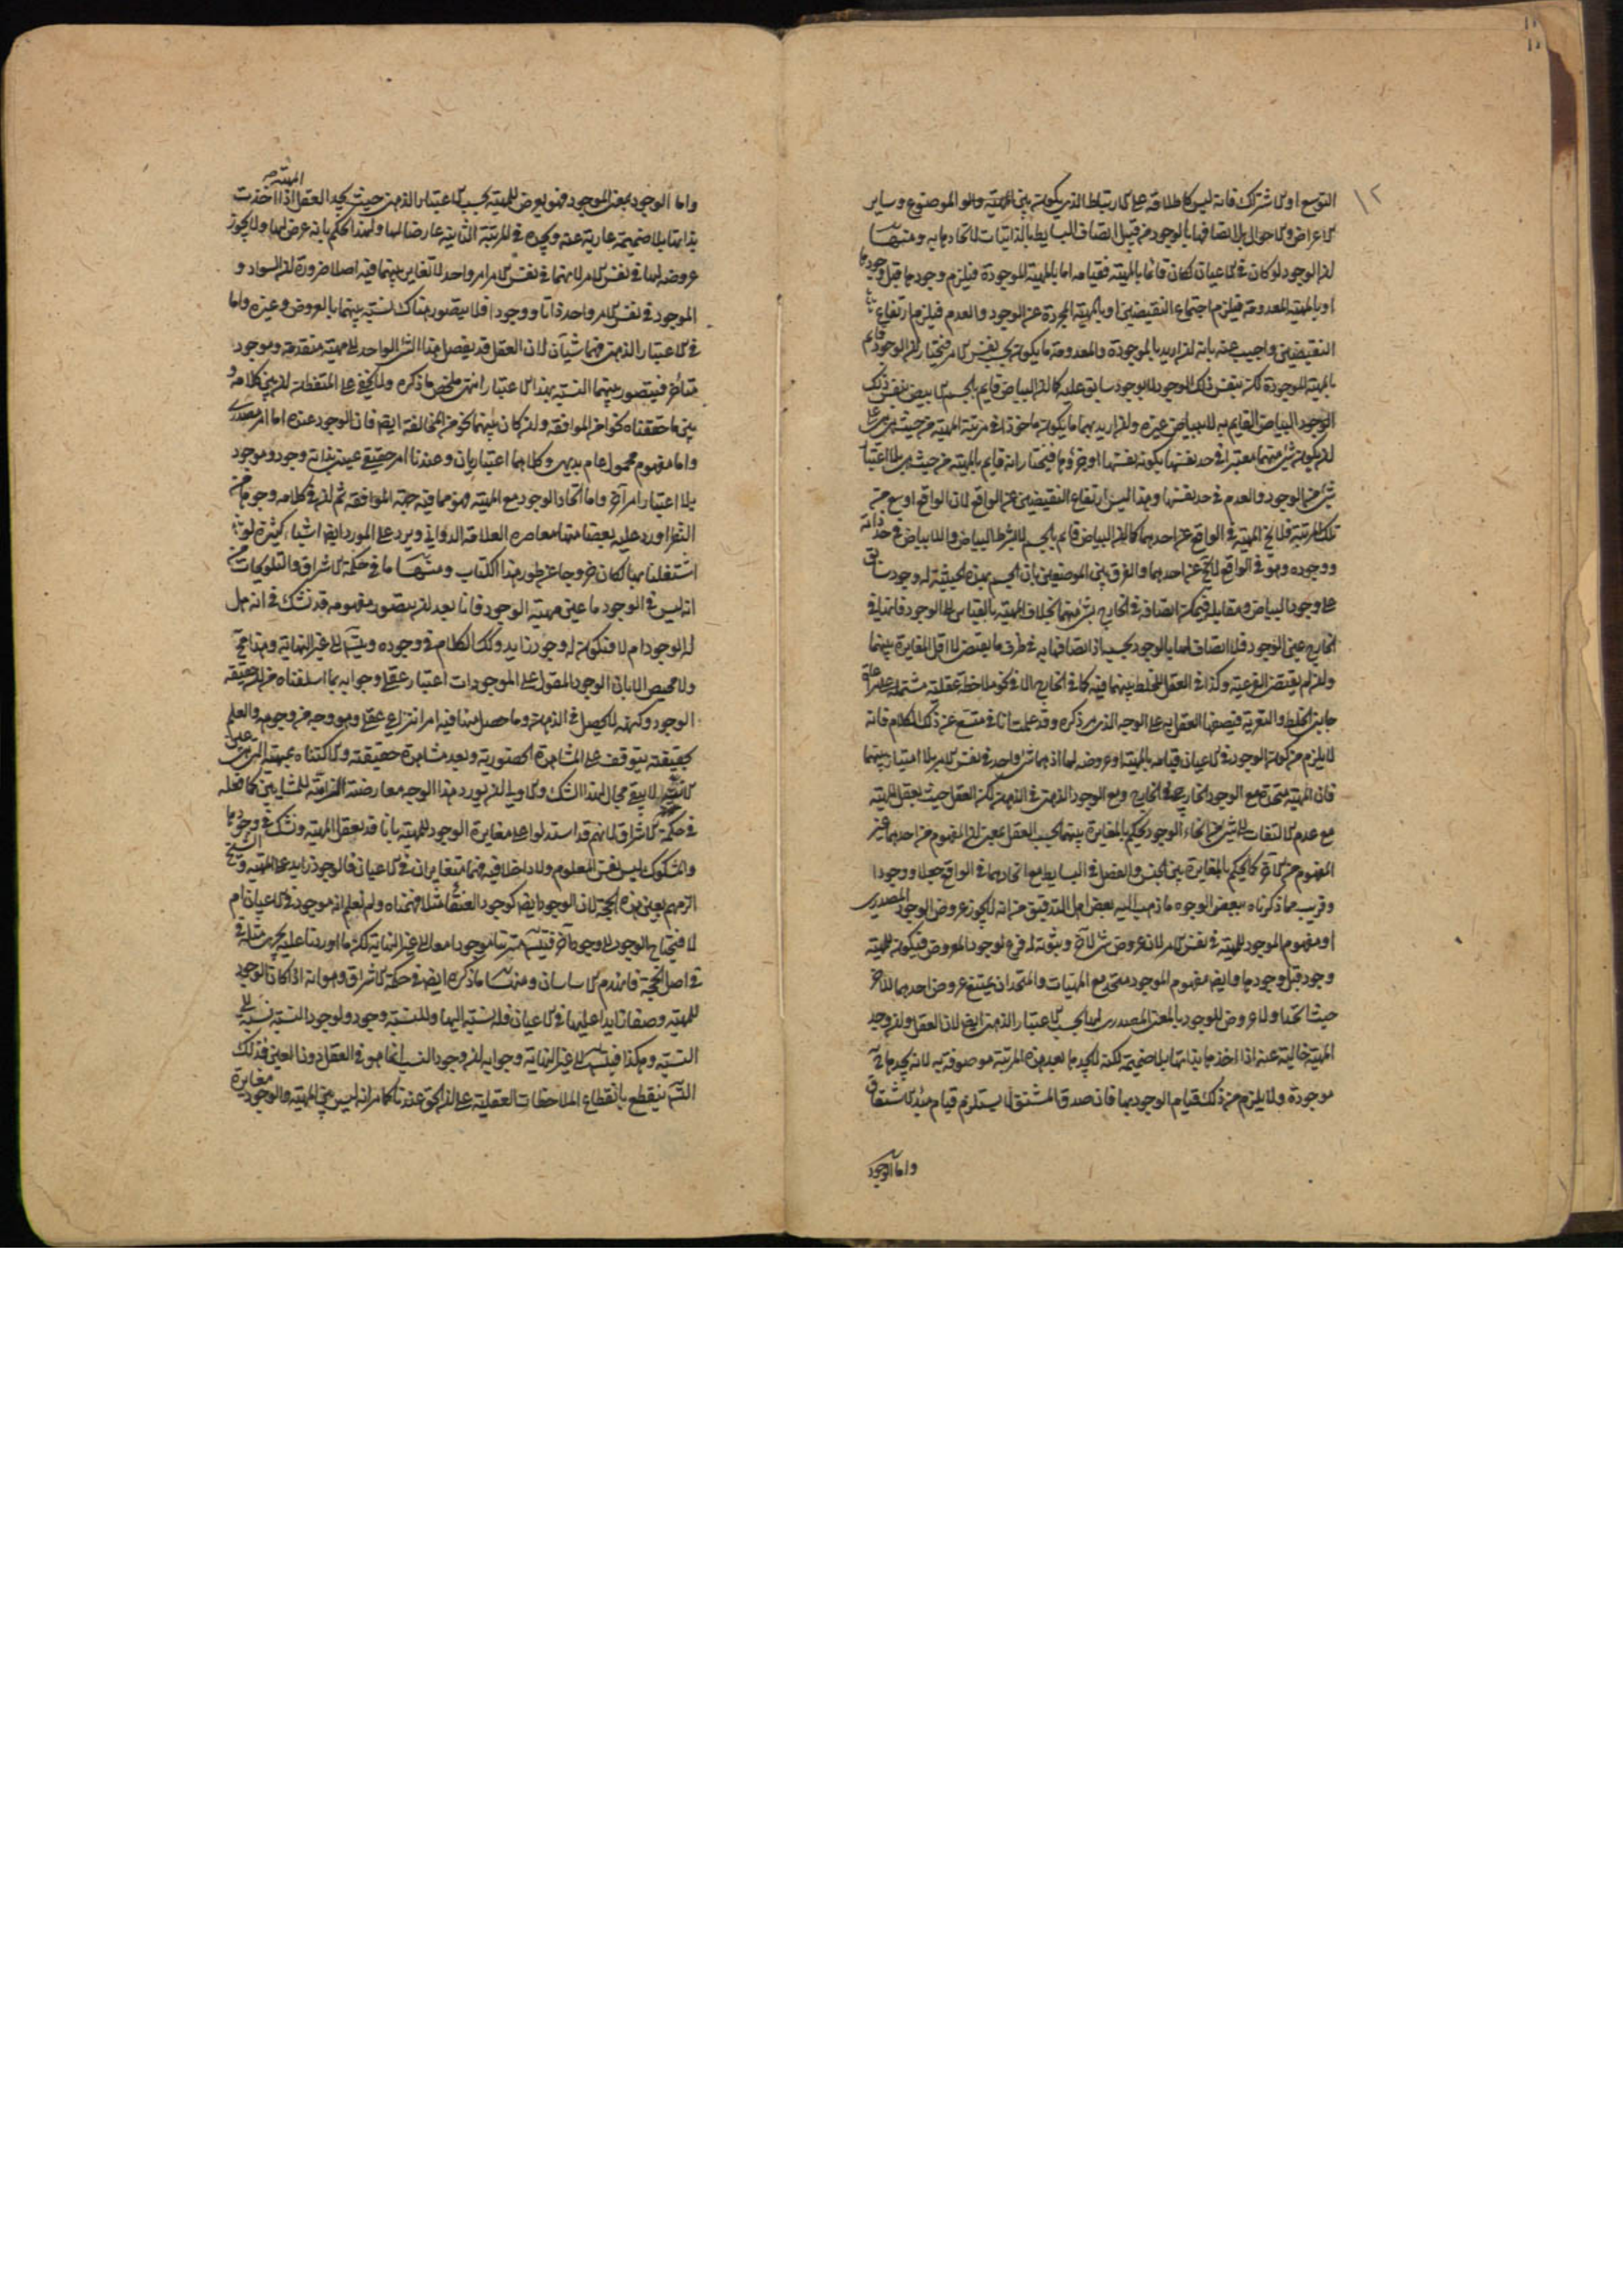 ١٢
التوسع او الاشتراك فانه ليس كاطلاقه على الارتباط الذى يكون بين المهية والموضوع وساير
الاعراض والاحوال بل اتصافها بالوجود من قبيل اتصاف البسايط بالذاتيات لاتحادها به ومنها
ان الوجود لو كان فى الاعيان لكان قائما بالمهية فقيامه اما بالمهية الموجودة فيلزم وجودها قبل وجودها
او بالمهية المعدومة فيلزم اجتماع النقيضين او بالمهية المجردة عن الوجود والعدم فيلزم ارتفاع
النقيضين واجيب عنه بانه ان اريد بالموجودة والمعدومة ما يكون بحسب نفس الامر فنختار ان الوجود قايم
بالمهية الموجودة لكن بنفس ذلك الوجود لا بوجود سابق عليه كما ان البياض قايم بالجسم الابيض بنفس ذلك
البياض القايم به لا ببياض غيره وان اريد بهما ما يكون ماخوذا فى مرتبة المهية من حيث هى هى على
ان يكون شىء منهما معتبرا فى حد نفسها بكونه نفسها او جزؤها فنختار انه قايم بالمهية من حيث هى بلا اعتبار
شىء من الوجود والعدم فى حد نفسها وهذا ليس ارتفاع النقيضين عن الواقع لان الواقع اوسع من
تلك المرتبة فلا يخ المهية فى الواقع عن احدهما كما ان البياض قايم بالجسم لا بشرط البياض واللابياض فى حد ذاته
ووجوده وهو فى الواقع لا يخ عن احدهما والفرق بين الموضعين بان الجسم بهذه الحيثية له وجود سابق
على وجود البياض ومقابله فيمكن اتصافه فى الخارج بشىء منهما بخلاف المهية بالقياس الى الوجود فانها فى
الخارج عين الوجود فلا اتصاف لها بالوجود بحسبه اذ اتصافها به فى ظرف ما يقتض لا اقل المغايرة بينهما
وان لم يقتض الفرعية وكذا فى العقل للخلط بينهما فيه كما فى الخارج الا فى نحو ملاحظة عقلية مشتملة على مراعاة
جانبى الخلط والتعرية فيصفها العقل به على الوجه الذى مر ذكره وقد علمت انا فى متسع عن ذلك الكلام فانه
لا يلزم من كون الوجود فى الاعيان قيامه بالمهية او عروضه لها اذ هما شىء واحد فى نفس الامر بلا امتياز بينهما
فان المهية متحدة مع الوجود الخارجى فى الخارج ومع الوجود الذهنى فى الذهن لكن العقل حيث يعقل المهية
مع عدم الالتفات الى شىء من انحاء الوجود يحكم بالمغايرة بينهما بحسب العقل بمعنى ان المفهوم من احدهما غير
المفهوم من الاخر كما يحكم بالمغايرة بين الجنس والفصل فى البسايط مع اتحادهما فى الواقع جعلا ووجودا
وقريب مما ذكرناه ببعض الوجوه ما ذهب اليه بعض اهل التدقيق من انه لا يجوز عروض الوجود المصدرى
او مفهوم الموجود للمهية فى نفس الامر لان عروض شىء لاخر وثبوته له فرع لوجود المعروض فيكون للمهية
وجود قبل وجودها وايضا مفهوم الموجود متحد مع المهيات والمتحدان يمتنع عروض احدهما للاخر
حيث اتحدا ولا عروض للوجود بالمعنى المصدرى لها بحسب الاعتبار الذهنى ايضا لان العقل وان وجد
المهية خالية عنه اذا اخذها بذاتها بلا ضميمة لكنه لا يجدها بعد هذه المرتبة موصوفة به لانه يجدها ح
موجودة ولا يلزم من ذلك قيام الوجود بها فان صدق المشتق لا يستلزم قيام مبدء الاشتقاق
واما الوجود
المهية
واما الوجود بمعنى الموجود فهو يعرض للمهية بحسب الاعتبار الذهنى حيث يجد العقل اذا اخذت
بذاتها بلا ضميمة عارية عنه ويجده فى المرتبة الثانية عارضا لها ولهذا يحكم بانه عرض لها ولا يجوز
عروضه لها فى نفس الامر لانهما فى نفس الامر امر واحد لا تغاير بينهما فيه اصلا ضرورة ان السواد و
الموجود فى نفس الامر واحد ذاتا ووجودا فلا يتصور هناك نسبة بينهما بالعروض وغيره واما
فى الاعتبار الذهنى فهما شيآن لان العقل قد يفصل هذا الشىء الواحد الى مهية متقدمة وموجود
متاخر فيتصور بينهما النسبة بهذا الاعتبار انتهى ملخص ما ذكره ولا يخفى على المتفطن ان بين كلامه و
بين ما حققناه نحوا من الموافقة وان كان بينهما نحو من المخالفة ايضا فان الوجود عنده اما امر مصدرى
واما مفهوم محمول عام بديهى وكلاهما اعتباريان وعندنا امر حقيقى عينى بذاته وجود وموجود
بلا اعتبار امر اخر واما اتحاد الوجود مع المهية فهو مما فيه جهة الموافقة ثم ان فى كلامه وجوها من
النظر اورد عليه بعضا منها معاصره العلامة الدوانى ويرد على المورد ايضا اشياء كثيرة لو
اشتغلنا بها لكان خروجا عن طور هذا الكتاب ومنها ما فى حكمة الاشراق والتلويحات من
انه ليس فى الوجود ما عين مهية الوجود فانا بعد ان نتصور مفهومه قد نشك فى انه هل
له الوجود ام لا فيكون له وجود زايد وكذلك الكلام فى وجوده ويتسلسل الى غير النهاية وهذا مح
ولا محيص الا بان الوجود المقول على الموجودات اعتبار عقلى وجوابه بما اسلفناه من ان حقيقة
الوجود وكنهه لا يحصل فى الذهن وما حصل منها فيه امر انتزاعى عقلى وهو وجه من وجوهه والعلم
بحقيقته يتوقف على المشاهدة الحضورية وبعد مشاهدة حقيقته والاكتناه بمهيته التى هى عين
الانية لا يبقى مجال لهذا الشك والاولى ان يورد هذا الوجه معارضة الزامية للمشايين كما فعله
فى حكمة الاشراق لانهم قد استدلوا على مغايرة الوجود للمهية بانا قد نعقل المهية ونشك فى وجودها
والمشكوك ليس نفس المعلوم ولا داخلا فيه فهما متغايران فى الاعيان فالوجود زايد على المهية والشيخ
الزمهم بعين هذه الحجة لان الوجود ايضا كوجود العنقا مثلا فهمناه ولم نعلم انه موجود فى الاعيان ام
لا فيحتاج الوجود الى وجود آخر فيتسلسل مترتبا موجودا معا الى غير النهاية لكن ما اوردنا عليه يجرى مثله فى
فى اصل الحجة فانهدم الاساسان ومنها ما ذكره ايضا فى حكمة الاشراق وهو انه اذا كان الوجود
للمهية وصفا زايدا عليها فى الاعيان فله نسبة اليها وللنسبة وجود ولوجود النسبة نسبة الى
النسبة وهكذا فيتسلسل الى غير النهاية وجوابه ان وجود النسب انما هو فى العقل دون العين فذلك
التسلسل ينقطع بانقطاع الملاحظات العقلية على ان الحق عندنا كما مر انه ليس بين المهية والوجود مغايرة